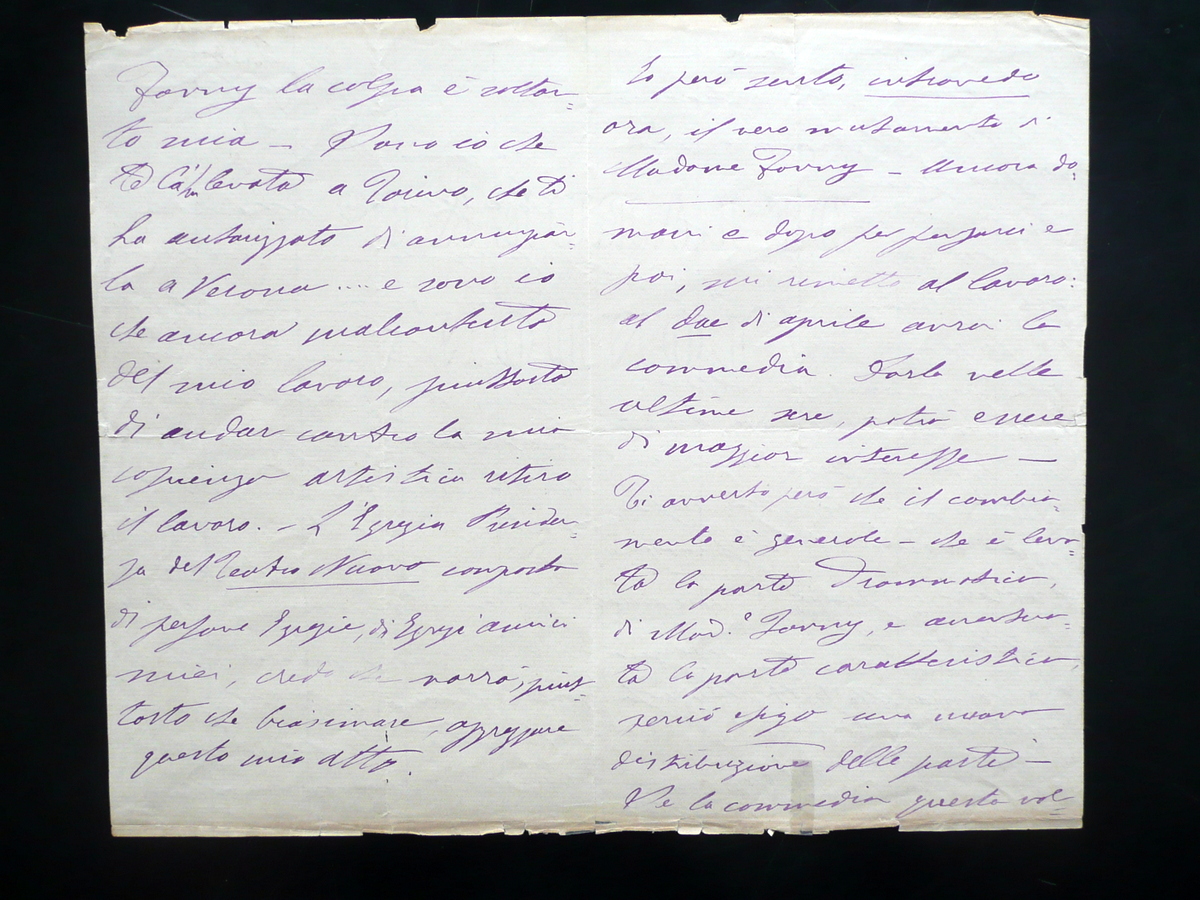 Fanny la colpa è soltan=
to mia — Sono io che
te l'ha levata a Torino, che ti
ha autorizzato di annunziar=
la a Verona .... e sono io
che ancora malcontento
del mio lavoro, piuttosto
di andar contro la mia
coscienza artistica ritiro
il lavoro. — L'Egregia Presiden=
za del Teatro Nuovo composta
di persone Egregie, di Egregi amici
miei, credo che vorrà, piut=
tosto che biasimare, apprezzare
questo mio atto.
Io però sento, intravedo
ora, il vero mutamento di
Madame Fanny — Ancora do=
mani e dopo per pensarci e
poi, mi rimetto al lavoro:
al due di aprile avrai la
commedia. Darla nelle
ultime sere, potrà essere
di maggior interesse —
Ti avverto però che il cambia=
mento è generale — che è leva=
ta la parte drammatica,
di Mad.e Fanny, e accentua=
ta la parte caratteristica,
perciò esigo una nuova
distribuzione delle parti —
Se la commedia questa vol=